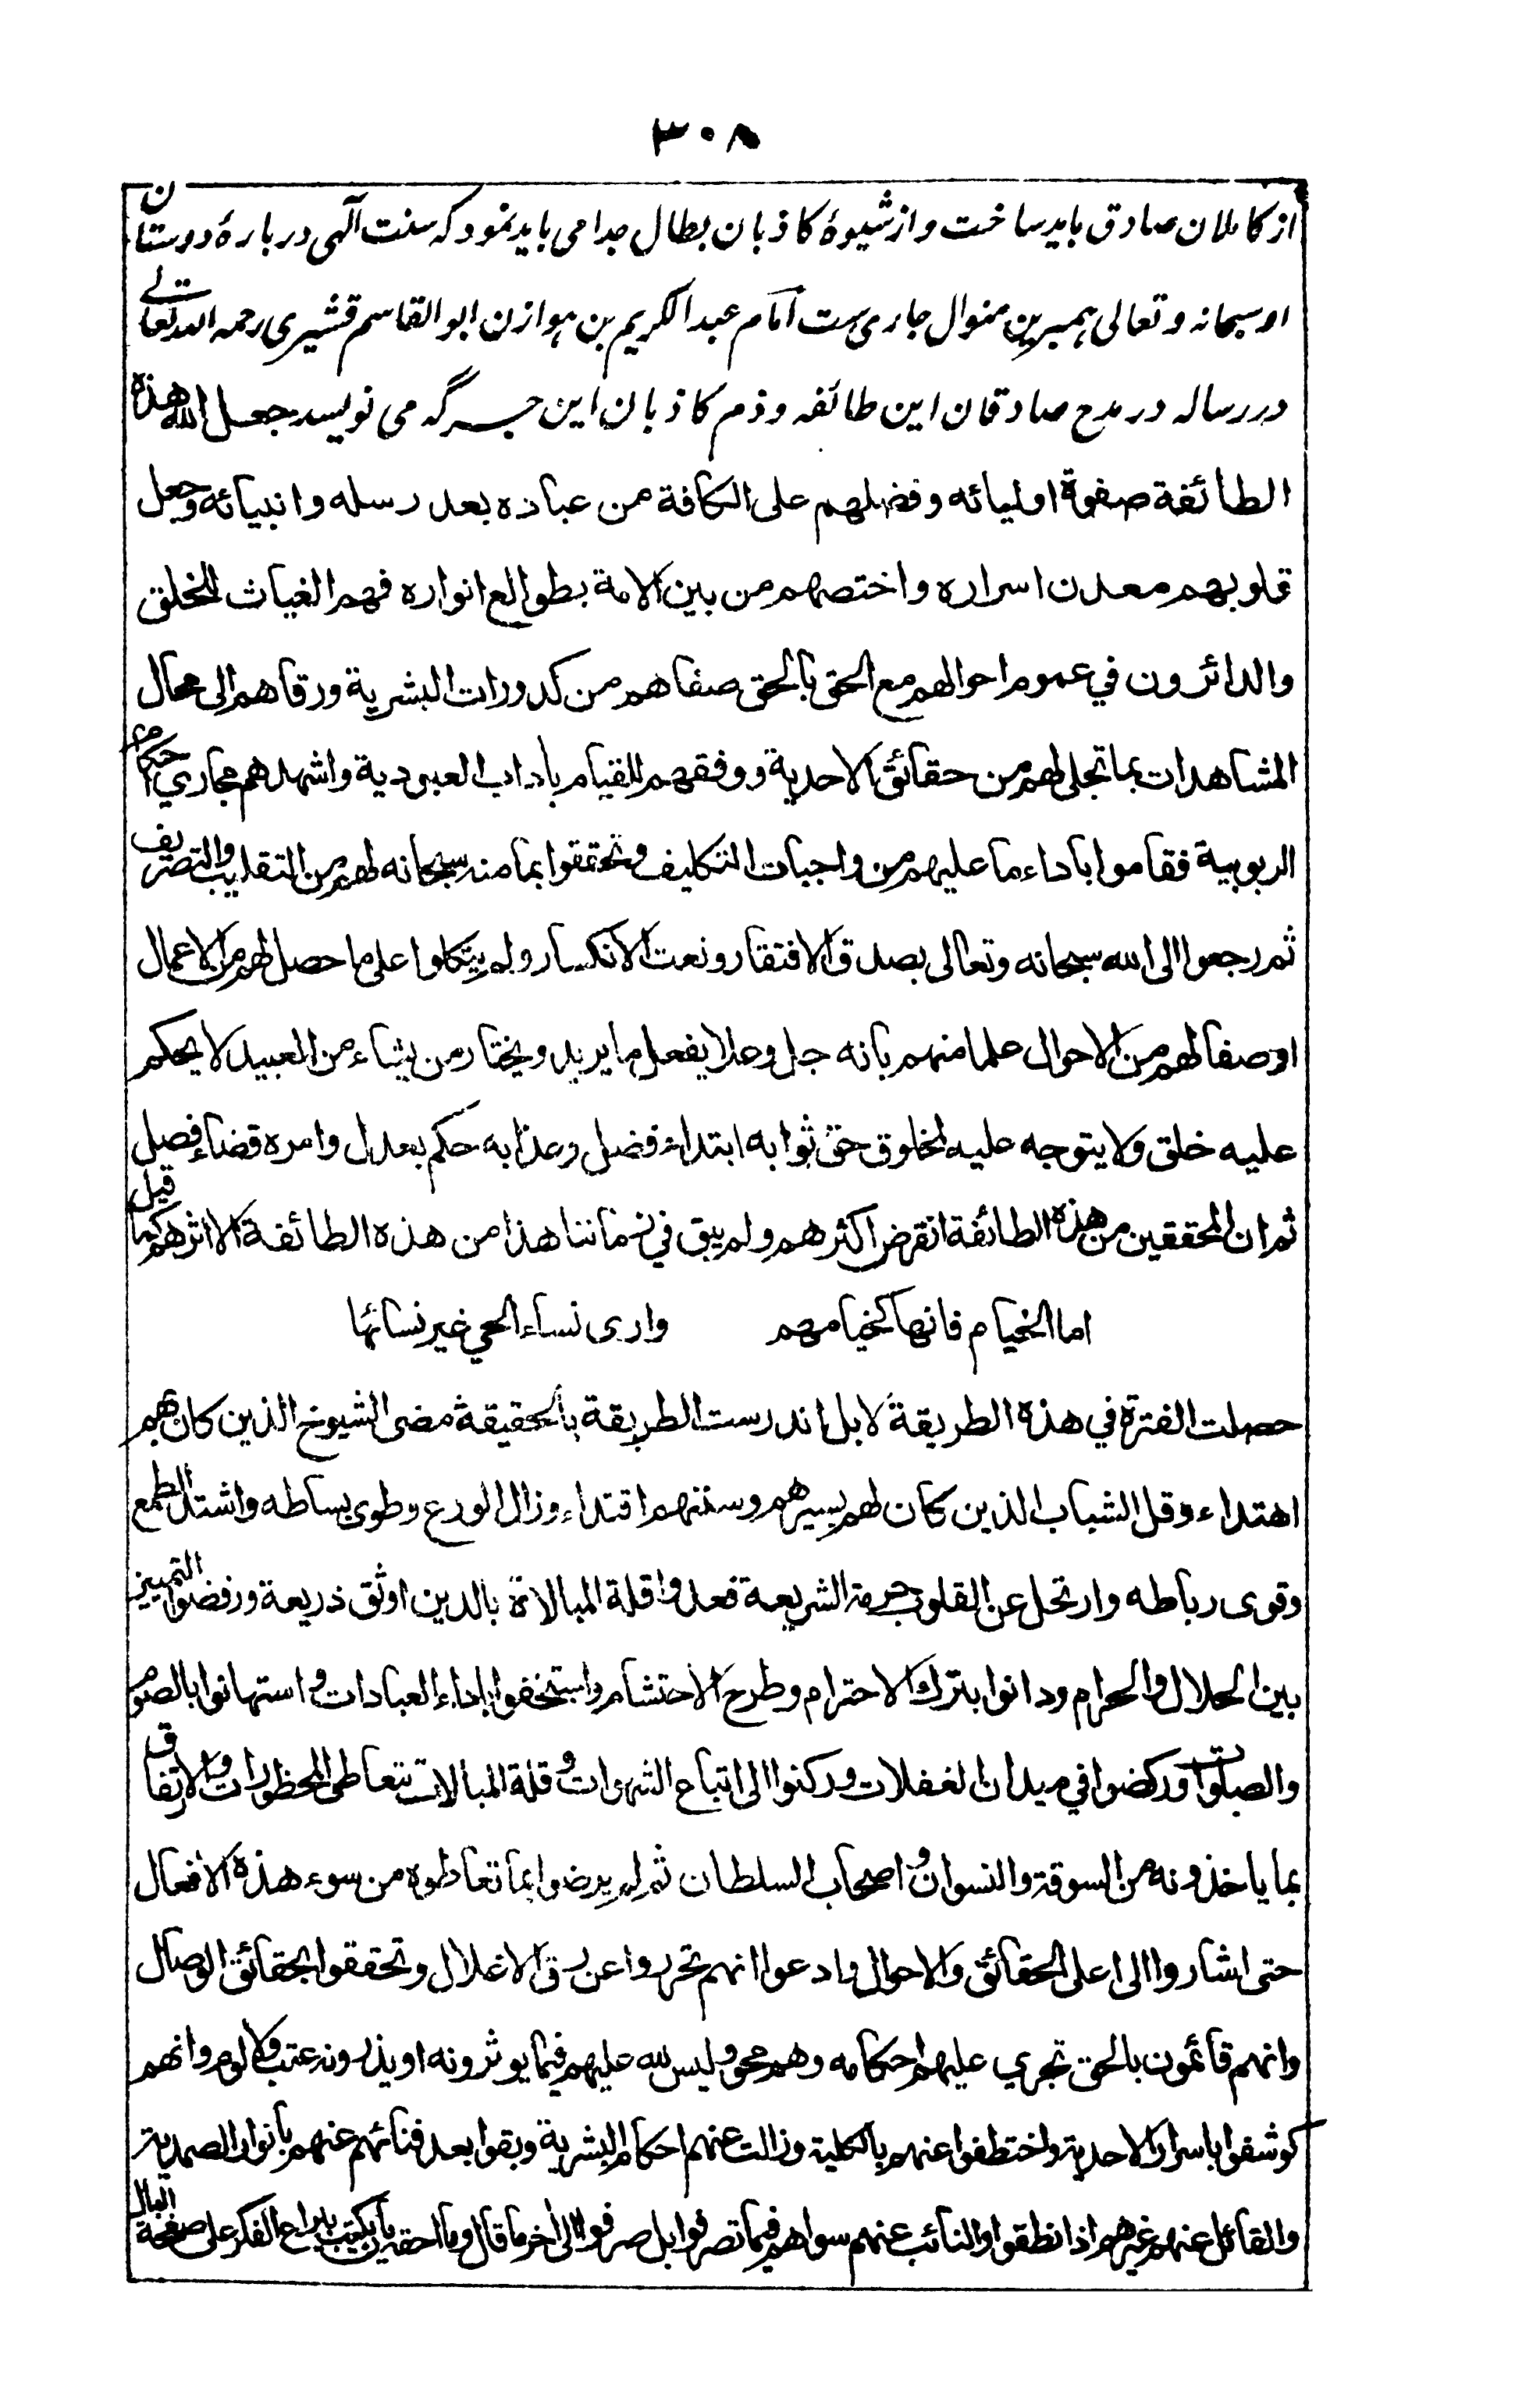 ٣٠٨
از کاملان صادق باید ساخت و از شیوهٔ کاذبان بطال جدا می باید نمود که سنت آلهی دربارهٔ دوستان
او سبحانه و تعالی بهمبرین منوال جاری ست امام عبد الکریم بن هوازن ابو القاسم قشیری رحمه الله تعالے
در رساله در مدح صادقان این طائفه و ذم کاذبان این جرگه می نویسد جعل الله هذه
الطائفة صفوة اوليائه وفضلهم على الكافة من عباده بعد رسله وانبيائه وجعل
قلوبهم معدن اسراره واختصهم من بين الامة بطوالع انواره فهم الغياث للخلق
والدائرون في عموم احوالهم مع الحق بالحق صفاهم من كدورات البشرية ورقاهم الى محال
المشاهدات بما تجلى لهم من حقائق الاحدية ووفقهم للقيام باداب العبودية واشهدهم مجاري احكام
الربوبية فقاموا باداء ما عليهم من واجبات التكليف وتحققوا بما منه سبحانه لهم من التقليب والتصريف
ثم رجعوا الى الله سبحانه وتعالى بصدق الافتقار ونعت الانكسار ولم يتكلوا على ما حصل لهم من الاعمال
او صفا لهم من الاحوال علما منهم بانه جل وعلا يفعل ما يريد ويختار من يشاء من العبيد لا يحكم
عليه خلق ولا يتوجه عليه لمخلوق حق ثوابه ابتداء فضل وعذابه حكم بعدل وامره قضاء فصل
ثم ان المحققين من هذه الطائفة انقرض اكثرهم ولم يبق في زماننا هذا من هذه الطائفة الا اثرهم كما قيل
اما الخيام فانها كخيامهم وارى نساء الحي غير نسائها
حصلت الفترة في هذه الطريقة لا بل اندرست الطريقة بالحقيقة مضى الشيوخ الذين كان بهم
اهتداء وقل الشباب الذين كان لهم بسيرهم وسنتهم اقتداء وزال الورع وطوى بساطه واشتد الطمع
وقوى رباطه وارتحل عن القلوب حرمة الشريعة فعدوا قلة المبالاة بالدين اوثق ذريعة ورفضوا التمييز
بين الحلال والحرام ودانوا بترك الاحترام وطرح الاحتشام واستخفوا باداء العبادات واستهانوا بالصوم
والصلوات وركضوا في ميدان الغفلات وركنوا الى اتباع الشهوات وقلة المبالات بتعاطى المحظورات والارتفاق
بما ياخذونه من السوقة والنسوان واصحاب السلطان ثم لم يرضوا بما تعاطوه من سوء هذه الافعال
حتى اشاروا الى اعلى الحقائق والاحوال وادعوا انهم تحرروا عن رق الاغلال وتحققوا بحقائق الوصال
وانهم قائمون بالحق تجري عليهم احكامه وهم محو وليس لله عليهم فيما يوثرونه او يذرونه عتب ولا لوم وانهم
كوشفوا باسرار الاحدية واختطفوا عنهم بالكلية وزالت عنهم احكام البشرية وبقوا بعد فنائهم عنهم بانوار الصمدية
والقائل عنهم غيرهم اذا نطقوا والنائب عنهم سواهم فيما تصرفوا بل صرفوا الى اخر ما قال وما احق بان يكتب بيراع الفكر على صفحة البال